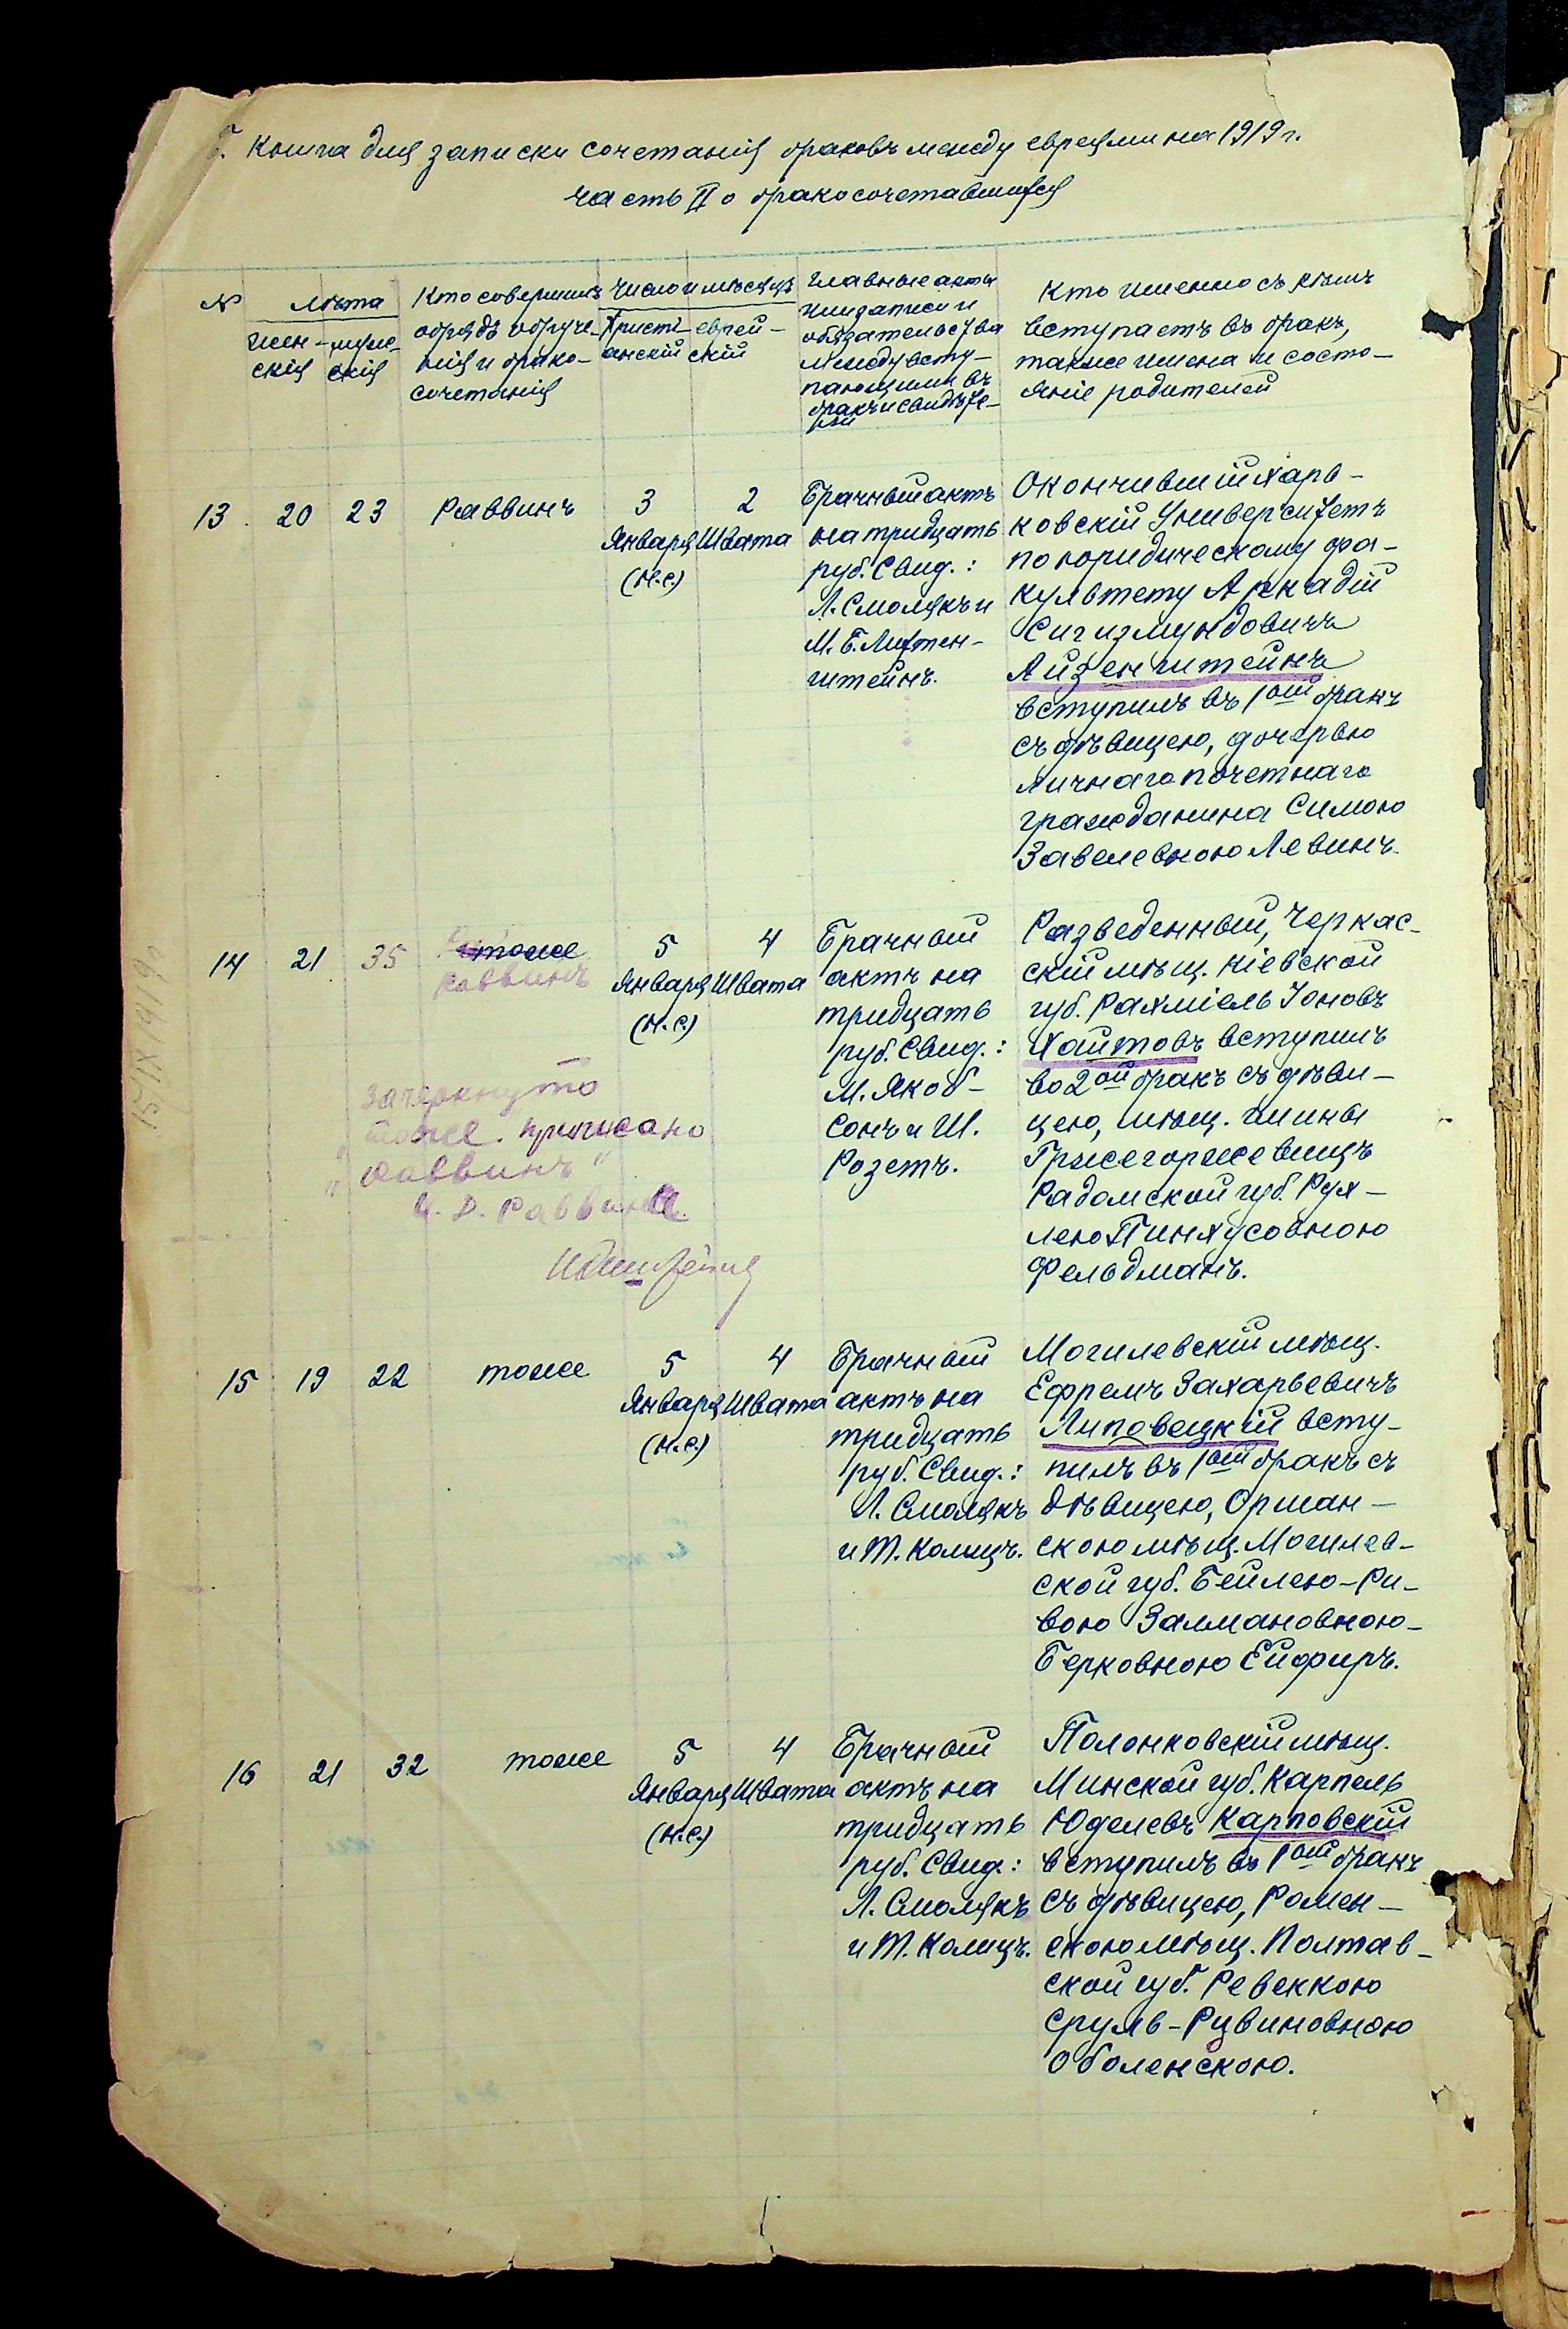 Книга для записки сочетанія браковъ между евреями на 1919 г.
часть II о бракосочетавшихся
№
Лѣта
Жен-
скія
муж-
скія
Кто совершилъ
обрядъ обруче-
нія и брако-
сочетанія
Число и мѣсяцъ
Христі-
анскій
еврей-
скій
Главные акты
или записи и
обязательства
между всту-
пающими въ
бракъ и свидѣте-
ли
Кто именно съ кѣмъ
вступаетъ въ бракъ,
также имена и состо-
яніе родителей
13
20
23
Раввинъ
3
Января
(н.с.)
2
Швата
Брачный актъ
на тридцать
руб. Свид.:
Л. Смолякъ и
М. Б. Лихтен-
штейнъ.
Окончившій Харь-
ковскій Университетъ
по юридическому фа-
культету Аркадій
Сигизмундовичъ
Айзенштейнъ
вступилъ въ 1ый бракъ
съ дѣвицею, дочерью
личнаго почетнаго
гражданина Симою
Завелевною Левинъ.
14
21
35
тоже
раввинъ
5
Января
(н.с.)
4
Швата
Брачный
актъ на
тридцать
руб. Свид.:
М. Якоб-
сонъ и Ш.
Розетъ.
Разведенный, Черкас-
скій мѣщ. Кіевской
губ. Рахміель Іоновъ
Хаитовъ вступилъ
во 2ой бракъ съ дѣви-
цею, мѣщ. гмины
Гржегоржевицъ
Радомской губ. Рух-
лею Пинхусовною
Фельдманъ.
зачеркнуто
"тоже". приписано
"раввинъ"
И. Д. Раввина
15
19
22
тоже
5
Января
(н.с.)
4
Швата
Брачный
актъ на
тридцать
руб. Свид.:
Л. Смолякъ
и Т. Колицъ.
Могилевскій мѣщ.
Ефремъ Захарьевичъ
Липовецкій всту-
пилъ въ 1ый бракъ съ
дѣвицею, Оршан-
скою мѣщ. Могилев-
ской губ. Бейлею-Ри-
вою Залмановною-
Берковною Ейфиръ.
16
21
32
тоже
5
Января
(н.с.)
4
Швата
Брачный
актъ на
тридцать
руб. Свид.:
Л. Смолякъ
и Т. Колицъ.
Полонковскій мѣщ.
Минской губ. Карпель
Юделевъ Карповскій
вступилъ въ 1ый бракъ
съ дѣвицею, Ромен-
скою мѣщ. Полтав-
ской губ. Ревеккою
Сруль-Рувиновною
Оболенскою.